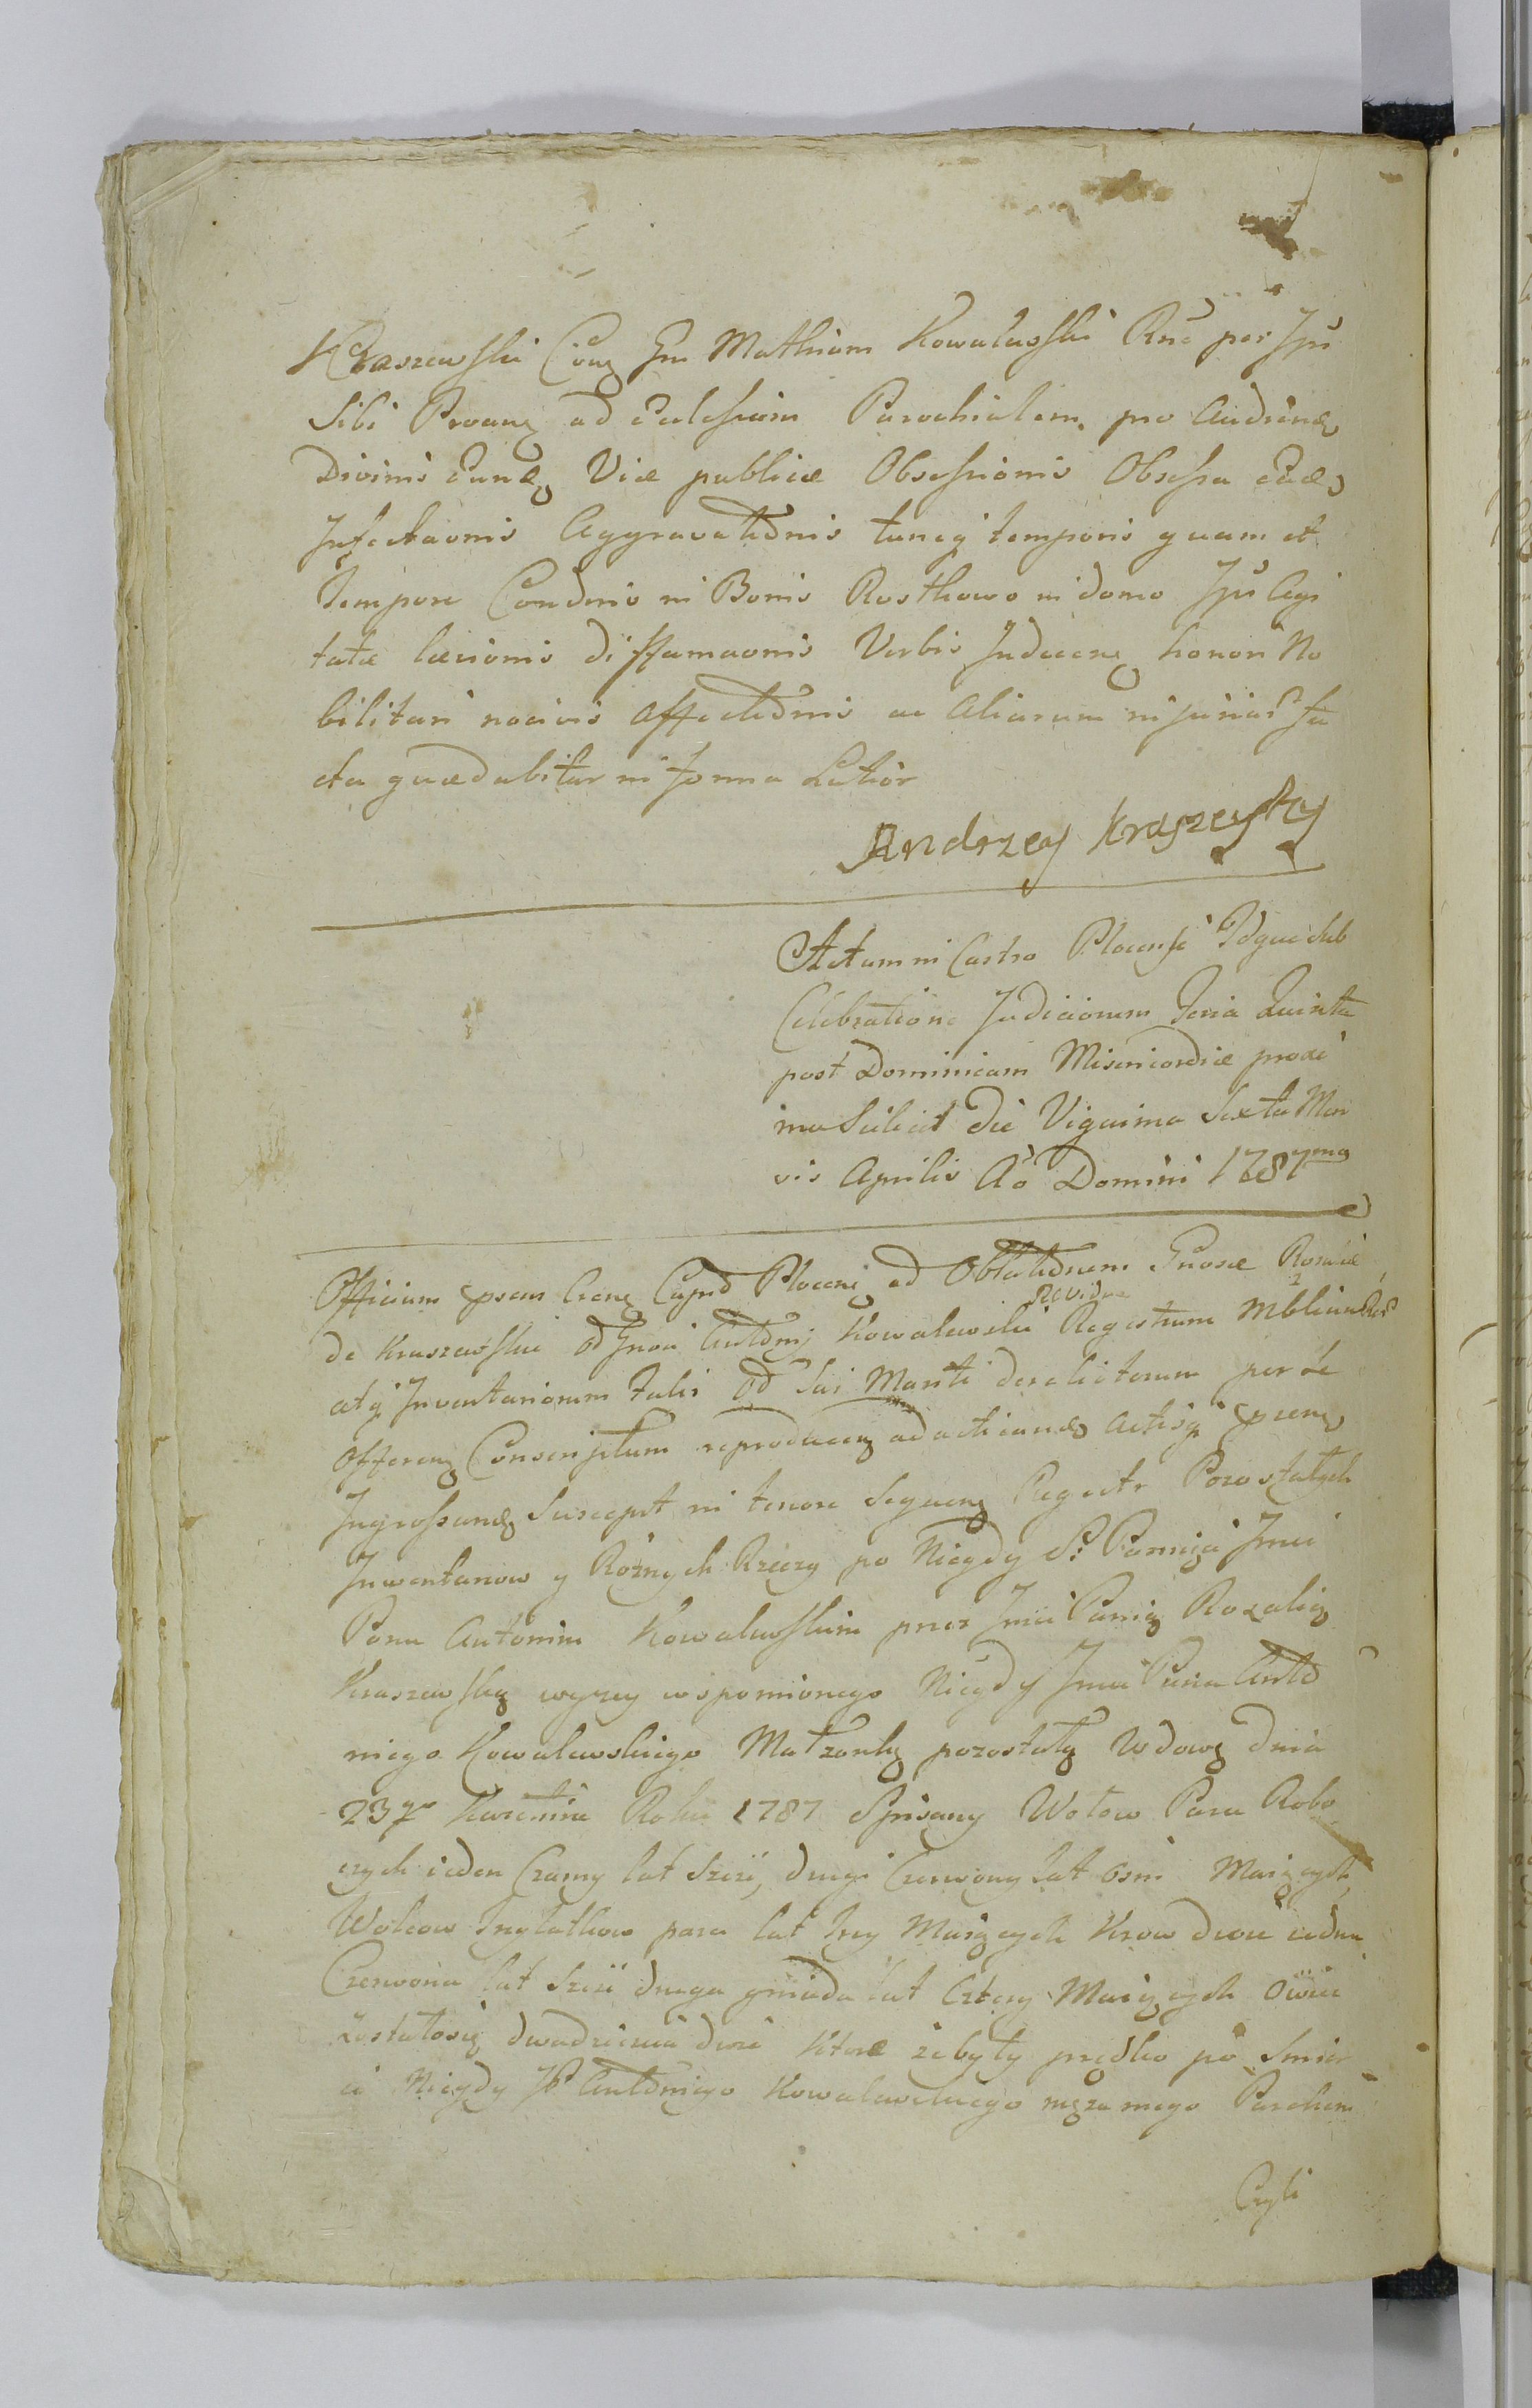 Kraszewski Cong Gm Mathiam Kowalewski Rne per Ipū
Sibi Procurꝫ ad Eccłesiam Parochialem pro Audiendꝫ
Divinis Eundꝫ Viæ publicæ Obsessionis Obsessæ
Infectaonis Aggravationis tuncq temporis quam et
Tempore Condenis in Bonis Rosthowo in domo Ipū Agi
tatæ læsionis diffamaonis Verbis Indecenꝫ honori No
bilitari nocivis Affectionis ac Aliarum injuriar fa
cta quæ dabitur in forma Latior
Andrzey Kraszeysky
Actum in Castro Plocensi Idque sub
Celebratione Judiciorum Feria Quinta
post Dominicam Misericordiæ proxi
ma Scilicet die Vigesima Sexta Men
sis Aprilis Aō Domini 1787mo
Officium psens Crense Capit Plocen ad Oblationem Gnosæ Rosaliæ
de Kraszewskie Gnosi Antonij Kowalewski Relictæ Viduæ Regestrum Mblium Rer
atq Inventariorum Talis Sui Mariti derelictorum per Se
Offerenꝫ Conscriptum reproducenꝫ ad acticandꝫ Actisq psenꝫ
Ingrossandꝫ Suscepit in tenore Sequenꝫ Regestr Pozostałych
Inwentarzow y Rożnych Rzeczy po Niegdy S: Pamięci Jmci
Panu Antonim Kowalewskim przez Jmci Panią Rozalię
Kraszewską wyzey wspomionego Niegdy Jmci Pana Anto
niego Kowalewskiego Małzonkę pozostałą Wdowę dnia
237 Kwietnia Roku 1787 Spisany Wołow Para Robo
czych ieden Czarny lat Sześć, drugi Czerwony lat osm Maiących
Wolcow Trzylatkow para lat trzy Maiących Krow dwie iedna
Czerwona lat Sześć druga gniada lat Cztery Maiących Owiec
zostałosię dwadziescia dwie Które zebyły prędko po Smier
ci Niegdy JP Antoniego Kowalewskiego męza mego Parchem
Czyli